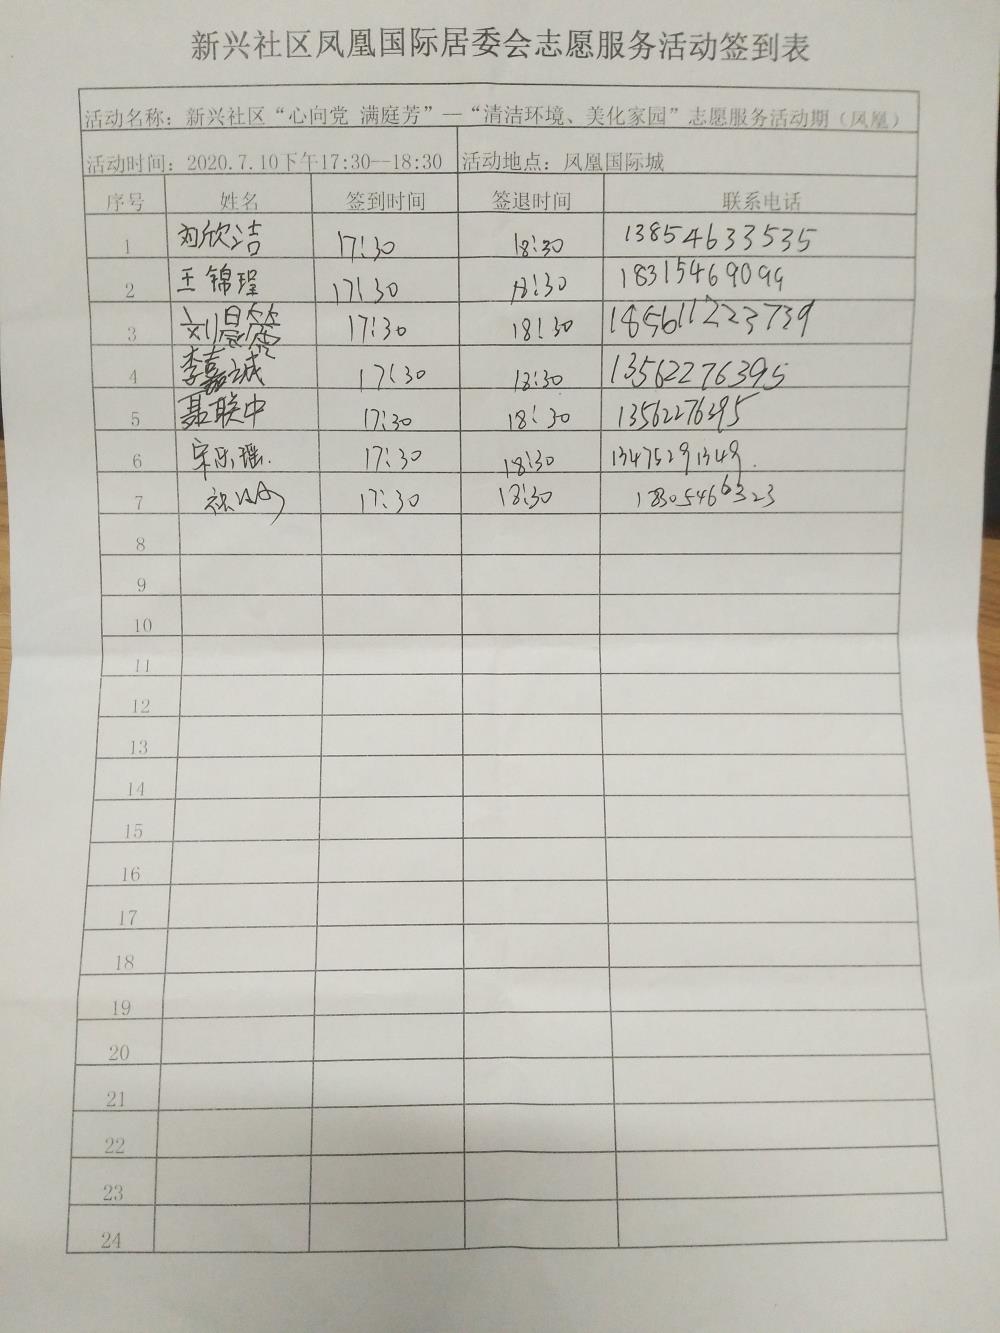 新兴社区凤凰国际居委会志愿服务活动签到表
活动名称：新兴社区“心向党 满庭芳”—“清洁环境、美化家园”志愿服务活动期（凤凰）
活动时间：2020.7.10下午17:30--18:30 活动地点：凤凰国际城
序号 姓名 签到时间 签退时间 联系电话
1 刘欣洁 17:30 18:30 13854633535
2 王锦瑝 17:30 18:30 18315469099
3 17:30 18:30 185611223739
4 李嘉诚 17:30 18:30 13562276395
5 聂联中 17:30 18:30 13562276395
6 宋乐瑶. 17:30 18:30 13475291349.
7 17:30 18:30 18305466323
8
9
10
11
12
13
14
15
16
17
18
19
20
21
22
23
24